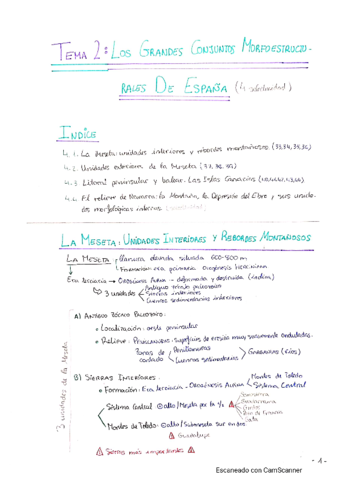 TEMA 2: LOS GRANDES CONJUNTOS MORFOESTRUCTU-
RALES DE ESPAÑA (4 selectividad)
ÍNDICE
4.1. La Meseta: unidades interiores y rebordes montañosos.
4.2. Unidades exteriores de la Meseta
4.3. Litoral peninsular y balear. Las Islas Canarias
4.4. El relieve de Navarra: la Montaña, la Depresión del Ebro, y sus unida-
des morfológicas internas
LA MESETA: UNIDADES INTERIORES Y REBORDES MONTAÑOSOS
LA MESETA llanura elevada situada 600-800 m
Formación: era primaria Orogénesis Herciniana
Era terciaria → Orogénesis Alpina → deformada y destruida
3 unidades Antiguo zócalo paleozoico
Sierras interiores
Cuencas sedimentarias interiores
3 unidades de la Meseta
A) ANTIGUO ZÓCALO PALEOZOICO:
• Localización: oeste peninsular
• Relieve: PENILLANURAS: superficies de erosión muy suavemente onduladas.
Zonas de contacto Penillanuras
Cuencas sedimentarias
Gargantas (ríos)
B) SIERRAS INTERIORES:
• Formación: Era terciaria - Orogénesis Alpina Montes de Toledo
Sistema Central
Sistema Central alto / Meseta por la 1/2 Somosierra
Guadarrama
Gredos
Peña de Francia
Gata
Montes de Toledo: alto / Submeseta sur en dos
Guadalupe
Sierras más importantes
- 1 -
Escaneado con CamScanner